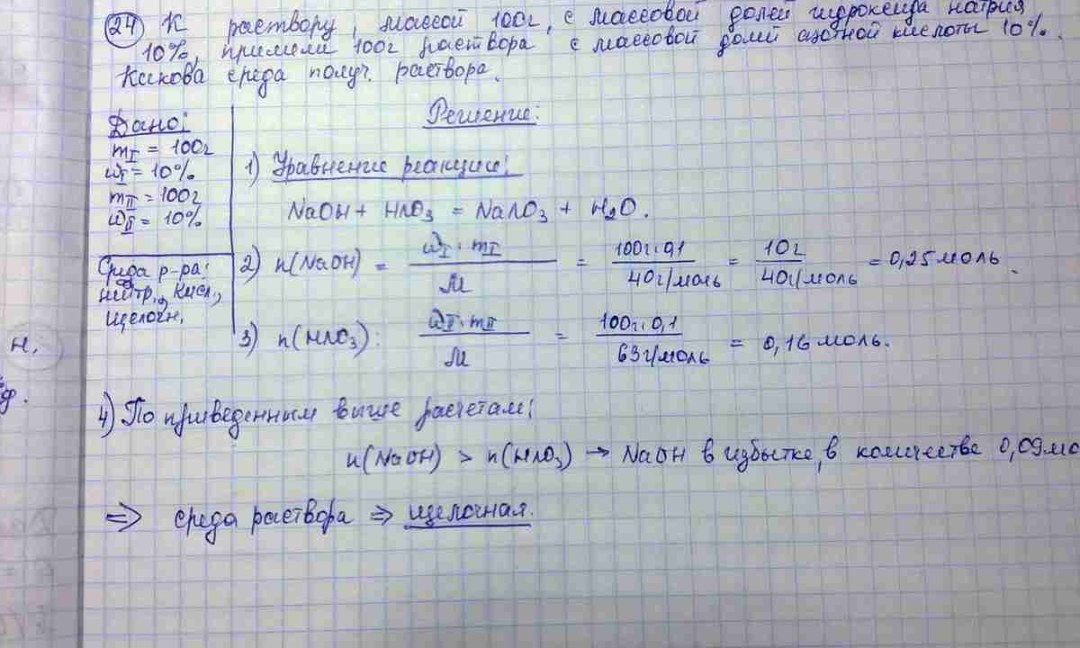 24 К раствору, массой 100г, с массовой долей гидроксида натрия
10%, прилили 100г раствора с массовой долей азотной кислоты 10%.
Какова среда получ. раствора.
Дано:
mI = 100г
ωI = 10%
mII = 100г
ωII = 10%
Среда р-ра:
нейтр., кисл.,
щелочн.
Решение:
1) Уравнение реакции:
NaOH + HNO3 = NaNO3 + H2O.
2) n(NaOH) = ωI · mI / M = 100г·0,1 / 40г/моль = 10г / 40г/моль = 0,25 моль.
3) n(HNO3): ωII · mII / M = 100г·0,1 / 63г/моль = 0,16 моль.
4) По приведенным выше расчетам:
n(NaOH) > n(HNO3) → NaOH в избытке, в количестве 0,09мо
⇒ среда раствора ⇒ щелочная.
н.
ф.